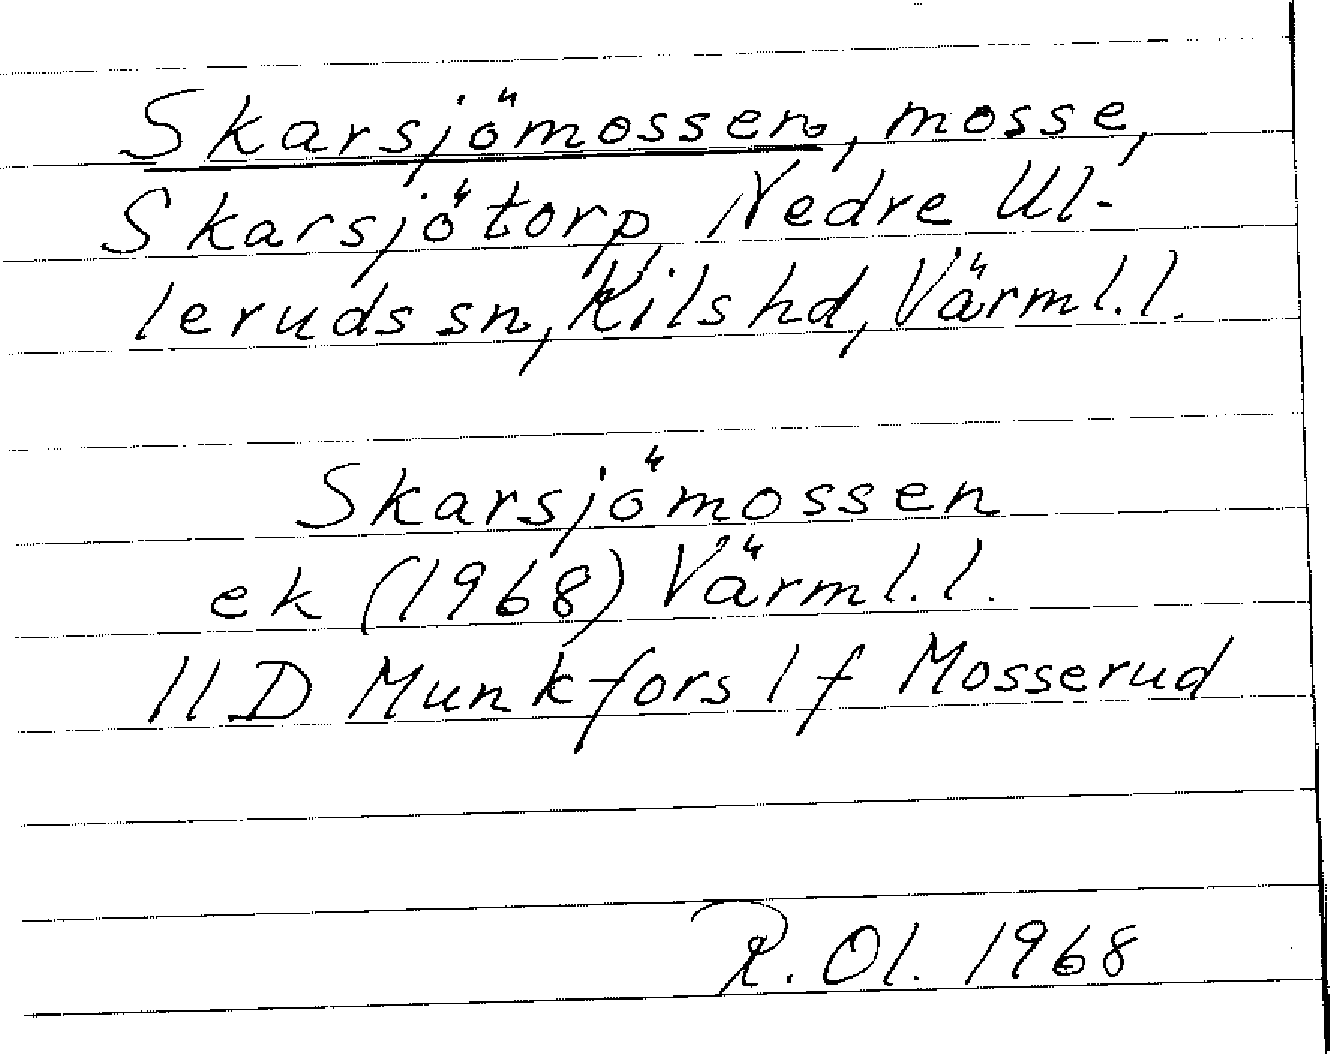 Skarsjömossen, mosse,
Skarsjötorp, Nedre Ul-
leruds sn, Kils hd, Värml.l.
Skarsjömossen
ek (1968) Värml.l.
11D Munkfors 1f Mosserud
R. Ol. 1968